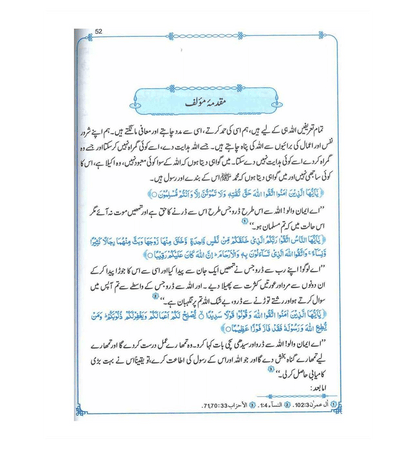 52
مقدمۂ مؤلف
تمام تعریفیں اللہ ہی کے لیے ہیں، ہم اسی کی حمد کرتے، اسی سے مدد چاہتے اور معافی مانگتے ہیں۔ ہم اپنے شرور
نفس اور اعمال کی برائیوں سے اللہ کی پناہ چاہتے ہیں۔ جسے اللہ ہدایت دے، اسے کوئی گمراہ نہیں کر سکتا اور جسے وہ
گمراہ کر دے اسے کوئی ہدایت نہیں دے سکتا۔ میں گواہی دیتا ہوں کہ اللہ کے سوا کوئی معبود نہیں، وہ اکیلا ہے، اس کا
کوئی ساجھی نہیں اور میں گواہی دیتا ہوں کہ محمد ﷺ اس کے بندے اور رسول ہیں۔
﴿يٰٓاَيُّهَا الَّذِيْنَ اٰمَنُوا اتَّقُوا اللّٰهَ حَقَّ تُقٰتِهٖ وَلَا تَمُوْتُنَّ اِلَّا وَاَنْتُمْ مُّسْلِمُوْنَ﴾
”اے ایمان والو! اللہ سے اس طرح ڈرو جس طرح اس سے ڈرنے کا حق ہے اور تمھیں موت نہ آئے مگر
اس حالت میں کہ تم مسلمان ہو۔“
﴿يٰٓاَيُّهَا النَّاسُ اتَّقُوْا رَبَّكُمُ الَّذِيْ خَلَقَكُمْ مِّنْ نَّفْسٍ وَّاحِدَةٍ وَّخَلَقَ مِنْهَا زَوْجَهَا وَبَثَّ مِنْهُمَا رِجَالًا كَثِيْرًا
وَّنِسَآءً وَاتَّقُوا اللّٰهَ الَّذِيْ تَسَآءَلُوْنَ بِهٖ وَالْاَرْحَامَ اِنَّ اللّٰهَ كَانَ عَلَيْكُمْ رَقِيْبًا﴾
”اے لوگو! اپنے رب سے ڈرو جس نے تمھیں ایک جان سے پیدا کیا اور اسی سے اس کا جوڑا پیدا کر کے
ان دونوں سے مرد اور عورتیں کثرت سے پھیلا دیے۔ اور اللہ سے ڈرو جس کے واسطے سے تم آپس میں
سوال کرتے ہو اور رشتے توڑنے سے ڈرو، بے شک اللہ تم پر نگہبان ہے۔“
﴿يٰٓاَيُّهَا الَّذِيْنَ اٰمَنُوا اتَّقُوا اللّٰهَ وَقُوْلُوْا قَوْلًا سَدِيْدًا ۝ يُّصْلِحْ لَكُمْ اَعْمَالَكُمْ وَيَغْفِرْ لَكُمْ ذُنُوْبَكُمْ وَمَنْ
يُّطِعِ اللّٰهَ وَرَسُوْلَهٗ فَقَدْ فَازَ فَوْزًا عَظِيْمًا﴾
”اے ایمان والو! اللہ سے ڈرو اور سیدھی سچی بات کہا کرو۔ وہ تمھارے عمل درست کر دے گا اور تمھارے
لیے تمھارے گناہ بخش دے گا اور جو اللہ اور اس کے رسول کی اطاعت کرے، تو یقیناً اس نے بہت بڑی
کامیابی حاصل کر لی۔“
اما بعد:
① آل عمرٰن 102:3 ② النسآء 1:4 ③ الأحزاب 71,70:33